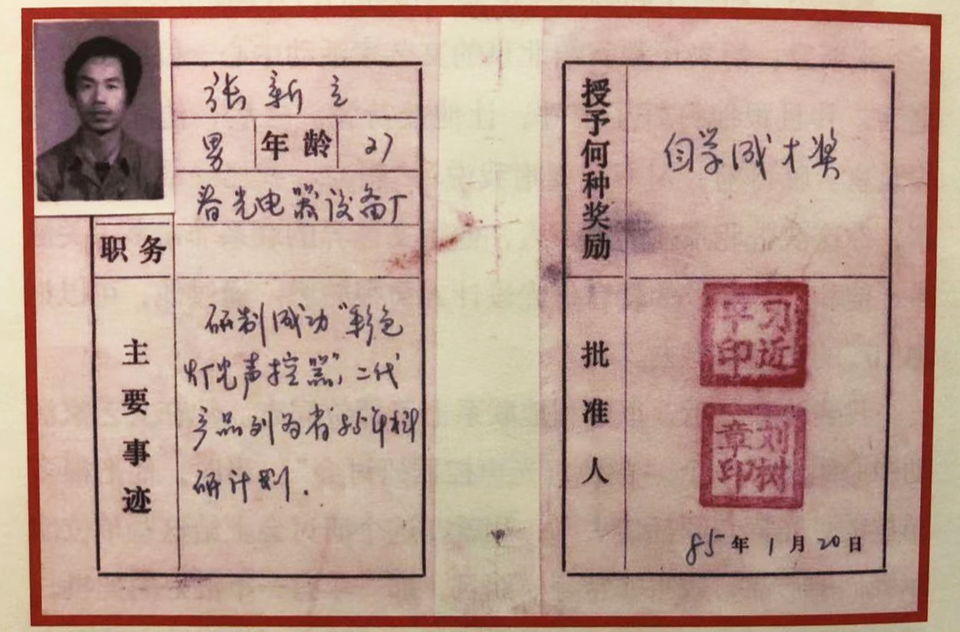 张新立
男 年龄 27
春光电器设备厂
职务
主要事迹
研制成功"彩色
灯光声控器",二代
产品列为省85年科
研计划.
授予何种奖励
自学成才奖
批准人
习近平印
刘树章印
85年1月20日